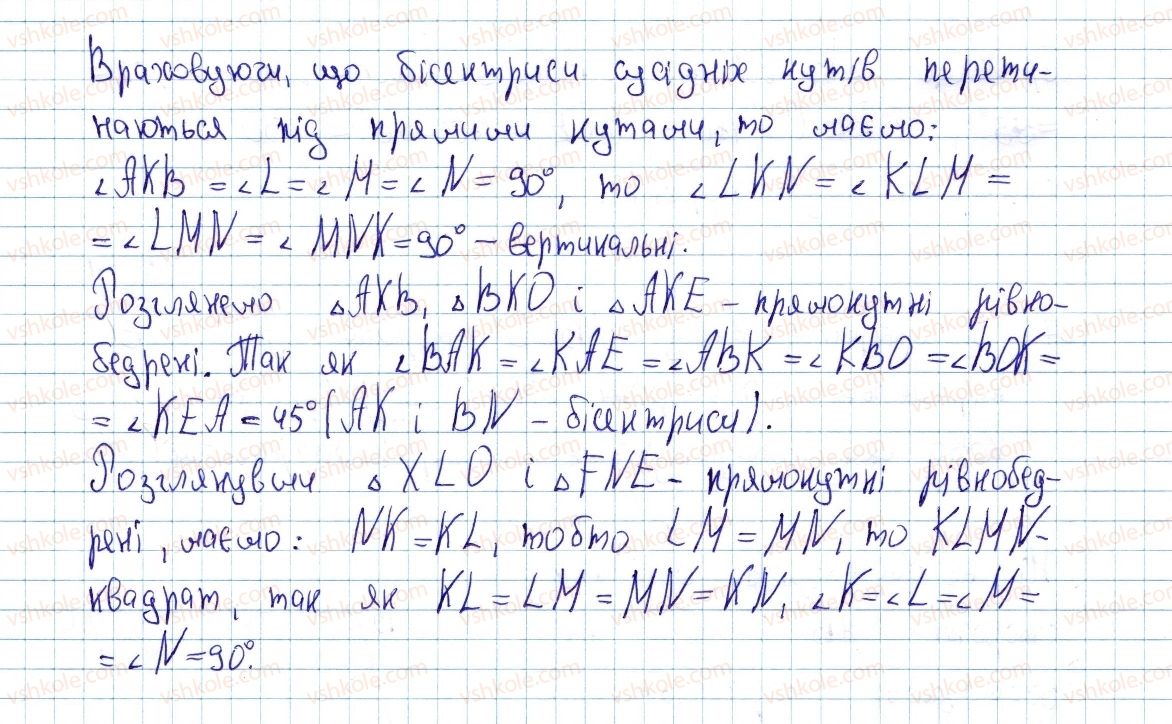 Враховуючи, що бісектриси сусідніх кутів перети-
наються під прямими кутами, то маємо:
∠AKB = ∠L = ∠M = ∠N = 90°, то ∠LKN = ∠KLM =
= ∠LMN = ∠MNK = 90° – вертикальні.
Розглянемо △AKB, △BKO і △AKE – прямокутні рівно-
бедрені. Так як ∠BAK = ∠KAE = ∠ABK = ∠KBO = ∠BOK =
= ∠KEA = 45° (AK і BN – бісектриси).
Розглянувши △XLO і △FNE – прямокутні рівнобед-
рені, маємо: NK = KL, тобто LM = MN, то KLMN-
квадрат, так як KL = LM = MN = KN, ∠K = ∠L = ∠M =
= ∠N = 90°.